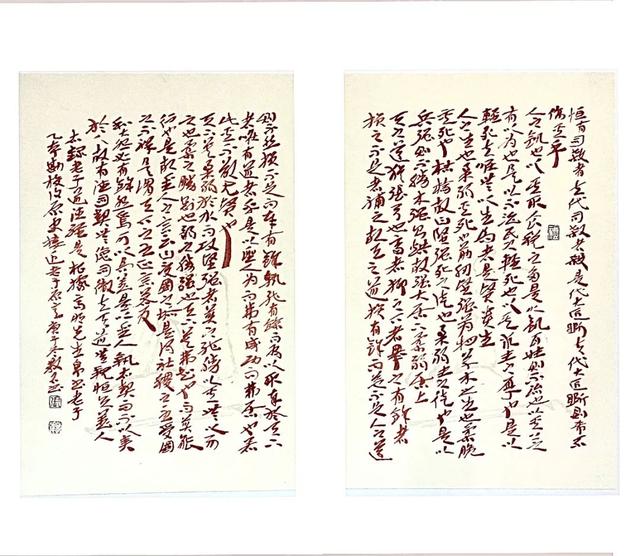 恒有司殺者夫代司殺者殺是代大匠斲夫代大匠斲則希不
傷其手
人之飢也以其取食稅之多是以飢百姓之不治也以其上之
有以為也是以不治民之輕死也以其求生之厚也是以
輕死夫唯無以生為者是賢貴生
人之生也柔弱其死也筋肕堅強萬物草木之生也柔脆
其死也枯槁故曰堅強死之徒也柔弱生之徒也是以
兵強則不勝木強則烘故強大居下柔弱居上
天之道猶張弓也高者抑之下者舉之有餘者
損之不足者補之故天之道損有餘而益不足人之道
則不然損不足而奉有餘孰能有餘而有以取奉於天
者唯有道者乎是以聖人為而弗有成功而弗居也若
此其不欲見賢也
天下莫柔弱於水而攻堅強者莫之能勝以其無以易
之也柔之勝剛也弱之勝強也天下莫弗知也而莫能
行也是故聖人之言云曰受國之垢是謂社稷之主受國
之不祥是謂天下之王正言若反
和大怨必有餘怨焉可以為善是以聖人執右契而不以責
於人故有德司契無德司徹夫天道無親恒與善人
老子道德經是根據高明先生帛書老子
乙本勘校